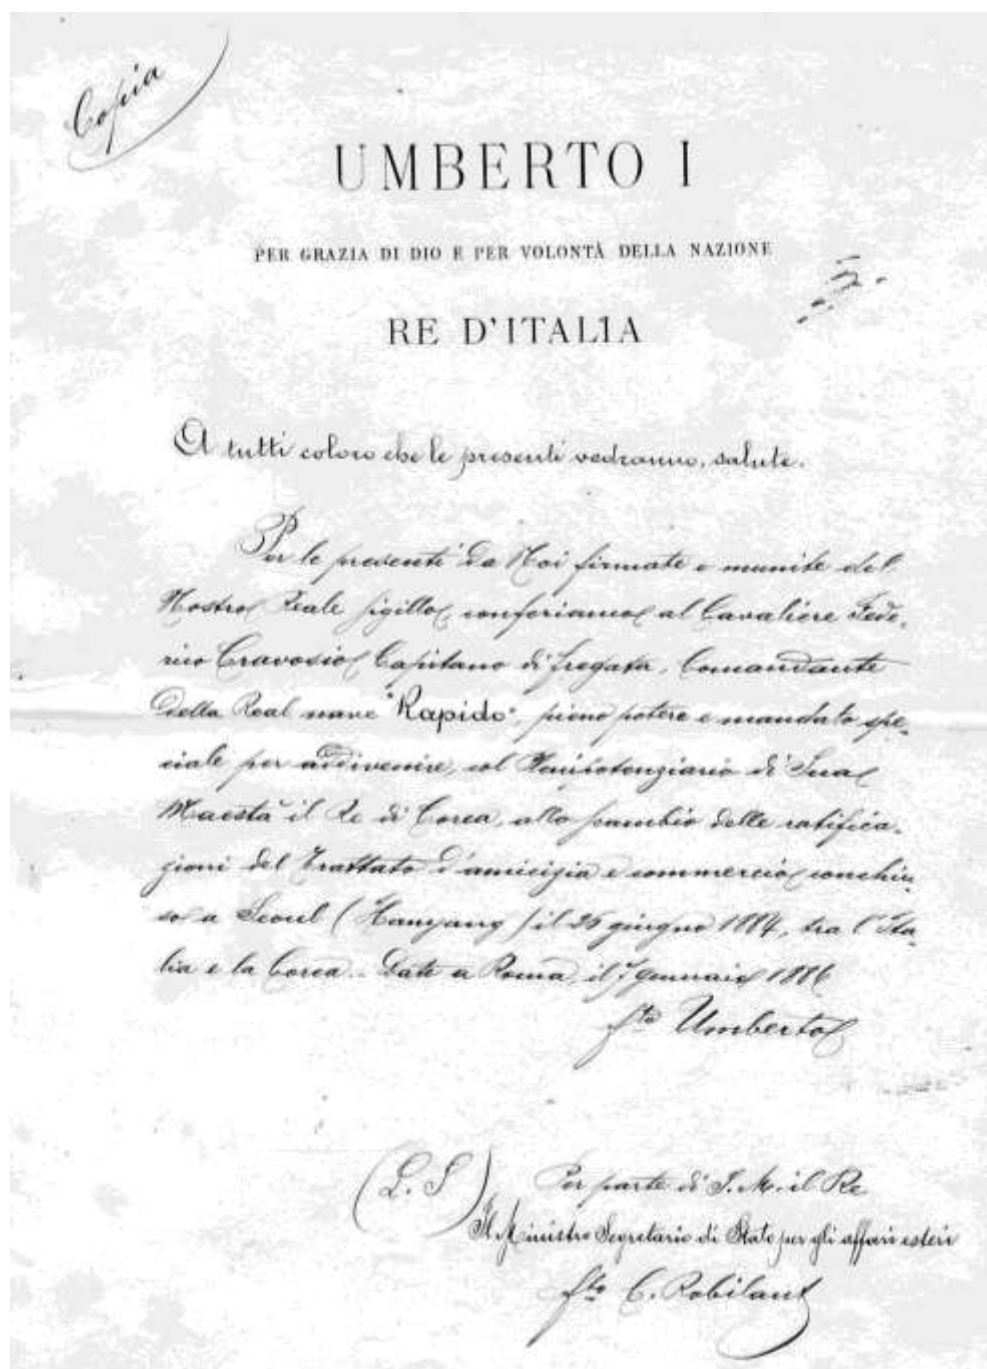 Copia
UMBERTO I
PER GRAZIA DI DIO E PER VOLONTÀ DELLA NAZIONE
RE D'ITALIA
A tutti coloro che le presenti vedranno, salute.
Per le presenti da Noi firmate e munite del
Nostro Reale sigillo, conferiamo al Cavaliere Fede-
rico Cravosio Capitano di fregata, Comandante
della Real nave "Rapido", pieno potere e mandato spe-
ciale per addivenire, col Plenipotenziario di Sua
Maestà il Re di Corea, allo scambio delle ratifica-
zioni del Trattato d'amicizia e commercio conchiu-
so a Seoul (Hanyang) il 26 giugno 1884, tra l'Ita-
lia e la Corea. Dato a Roma, il 7 gennaio 1886
fto Umberto
(L. S)
Per parte di S. M. il Re
Il Ministro Segretario di Stato per gli affari esteri
fto C. Robilant